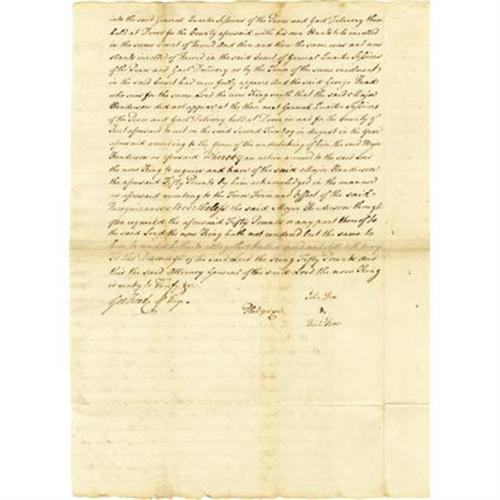 into the said General Quarter Sessions of the Peace and Gaol Delivery then
held at Dover for the County aforesaid with his own Hands to be inrolled
in the same Court of Record And then and there the same was and now
stands inrolled of Record in the said Court of General Quarter Sessions
of the Peace and Gaol Delivery as by the Tenor of the same
in the said Court had more fully appears And the said George Read
who sues for the same Lord the now King saith that the said Major
Henderson did not appear at the then next General Quarter Sessions
of the Peace and Gaol Delivery held at Dover in and for the County of
Kent aforesaid to wit on the said Second Tuesday in August in the Year
aforesaid according to the form of the undertaking of him the said Major
Henderson as aforesaid Whereby an action accrued to the said Lord
the now King to require and have of the said Major Henderson
the aforesaid Fifty Pounds by him acknowledged in the manner
as aforesaid according to the Force Form and Effect of the said
Recognizance Nevertheless the said Major Henderson though
often required the aforesaid Fifty Pounds or any part thereof to
the said Lord the now King hath not rendered but the same to
him to render
To the Damage of the said Lord the King Fifty Pounds And
this the said Attorney General of the said Lord the now King
is ready to Verify &c.
Geo Read
Pledges
John Doe
&
Rich.d Roe